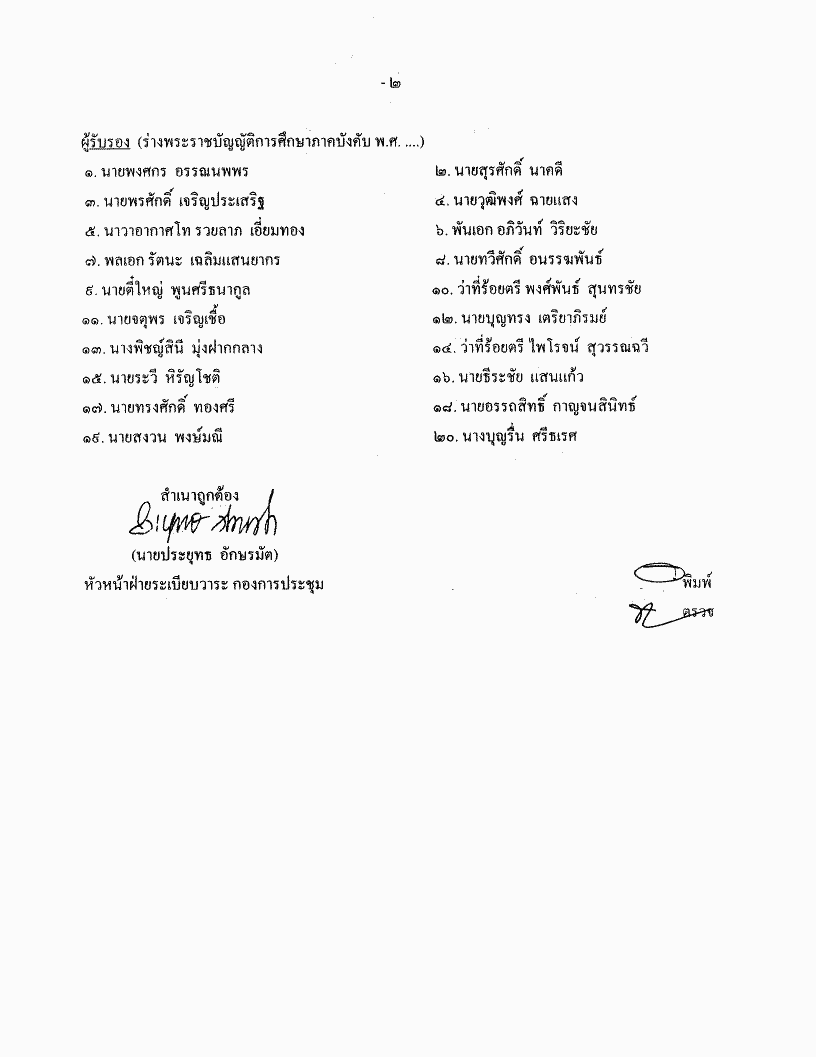 - ๒
ผู้รับรอง (ร่างพระราชบัญญัติการศึกษาภาคบังคับ พ.ศ. ....)
๑. นายพงศกร อรรณนพพร ๒. นายสุรศักดิ์ นาคดี
๓. นายพรศักดิ์ เจริญประเสริฐ ๔. นายวุฒิพงศ์ ฉายแสง
๕. นาวาอากาศโท รวยลาภ เอี่ยมทอง ๖. พันเอก อภิวันท์ วิริยะชัย
๗. พลเอก รัตนะ เฉลิมแสนยากร ๘. นายทวีศักดิ์ อนรรฆพันธ์
๙. นายตี๋ใหญ่ พูนศรีธนากูล ๑๐. ว่าที่ร้อยตรี พงศ์พันธ์ สุนทรชัย
๑๑. นายจตุพร เจริญเชื้อ ๑๒. นายบุญทรง เตริยาภิรมย์
๑๓. นางพิชญ์สินี มุ่งฝากกลาง ๑๔. ว่าที่ร้อยตรี ไพโรจน์ สุวรรณฉวี
๑๕. นายระวี หิรัญโชติ ๑๖. นายธีระชัย แสนแก้ว
๑๗. นายทรงศักดิ์ ทองศรี ๑๘. นายอรรถสิทธิ์ กาญจนสินิทธ์
๑๙. นายสงวน พงษ์มณี ๒๐. นางบุญรื่น ศรีธเรศ
สำเนาถูกต้อง
(นายประยุทธ อักษรมัต)
หัวหน้าฝ่ายระเบียบวาระ กองการประชุม
พิมพ์
ตรวจ